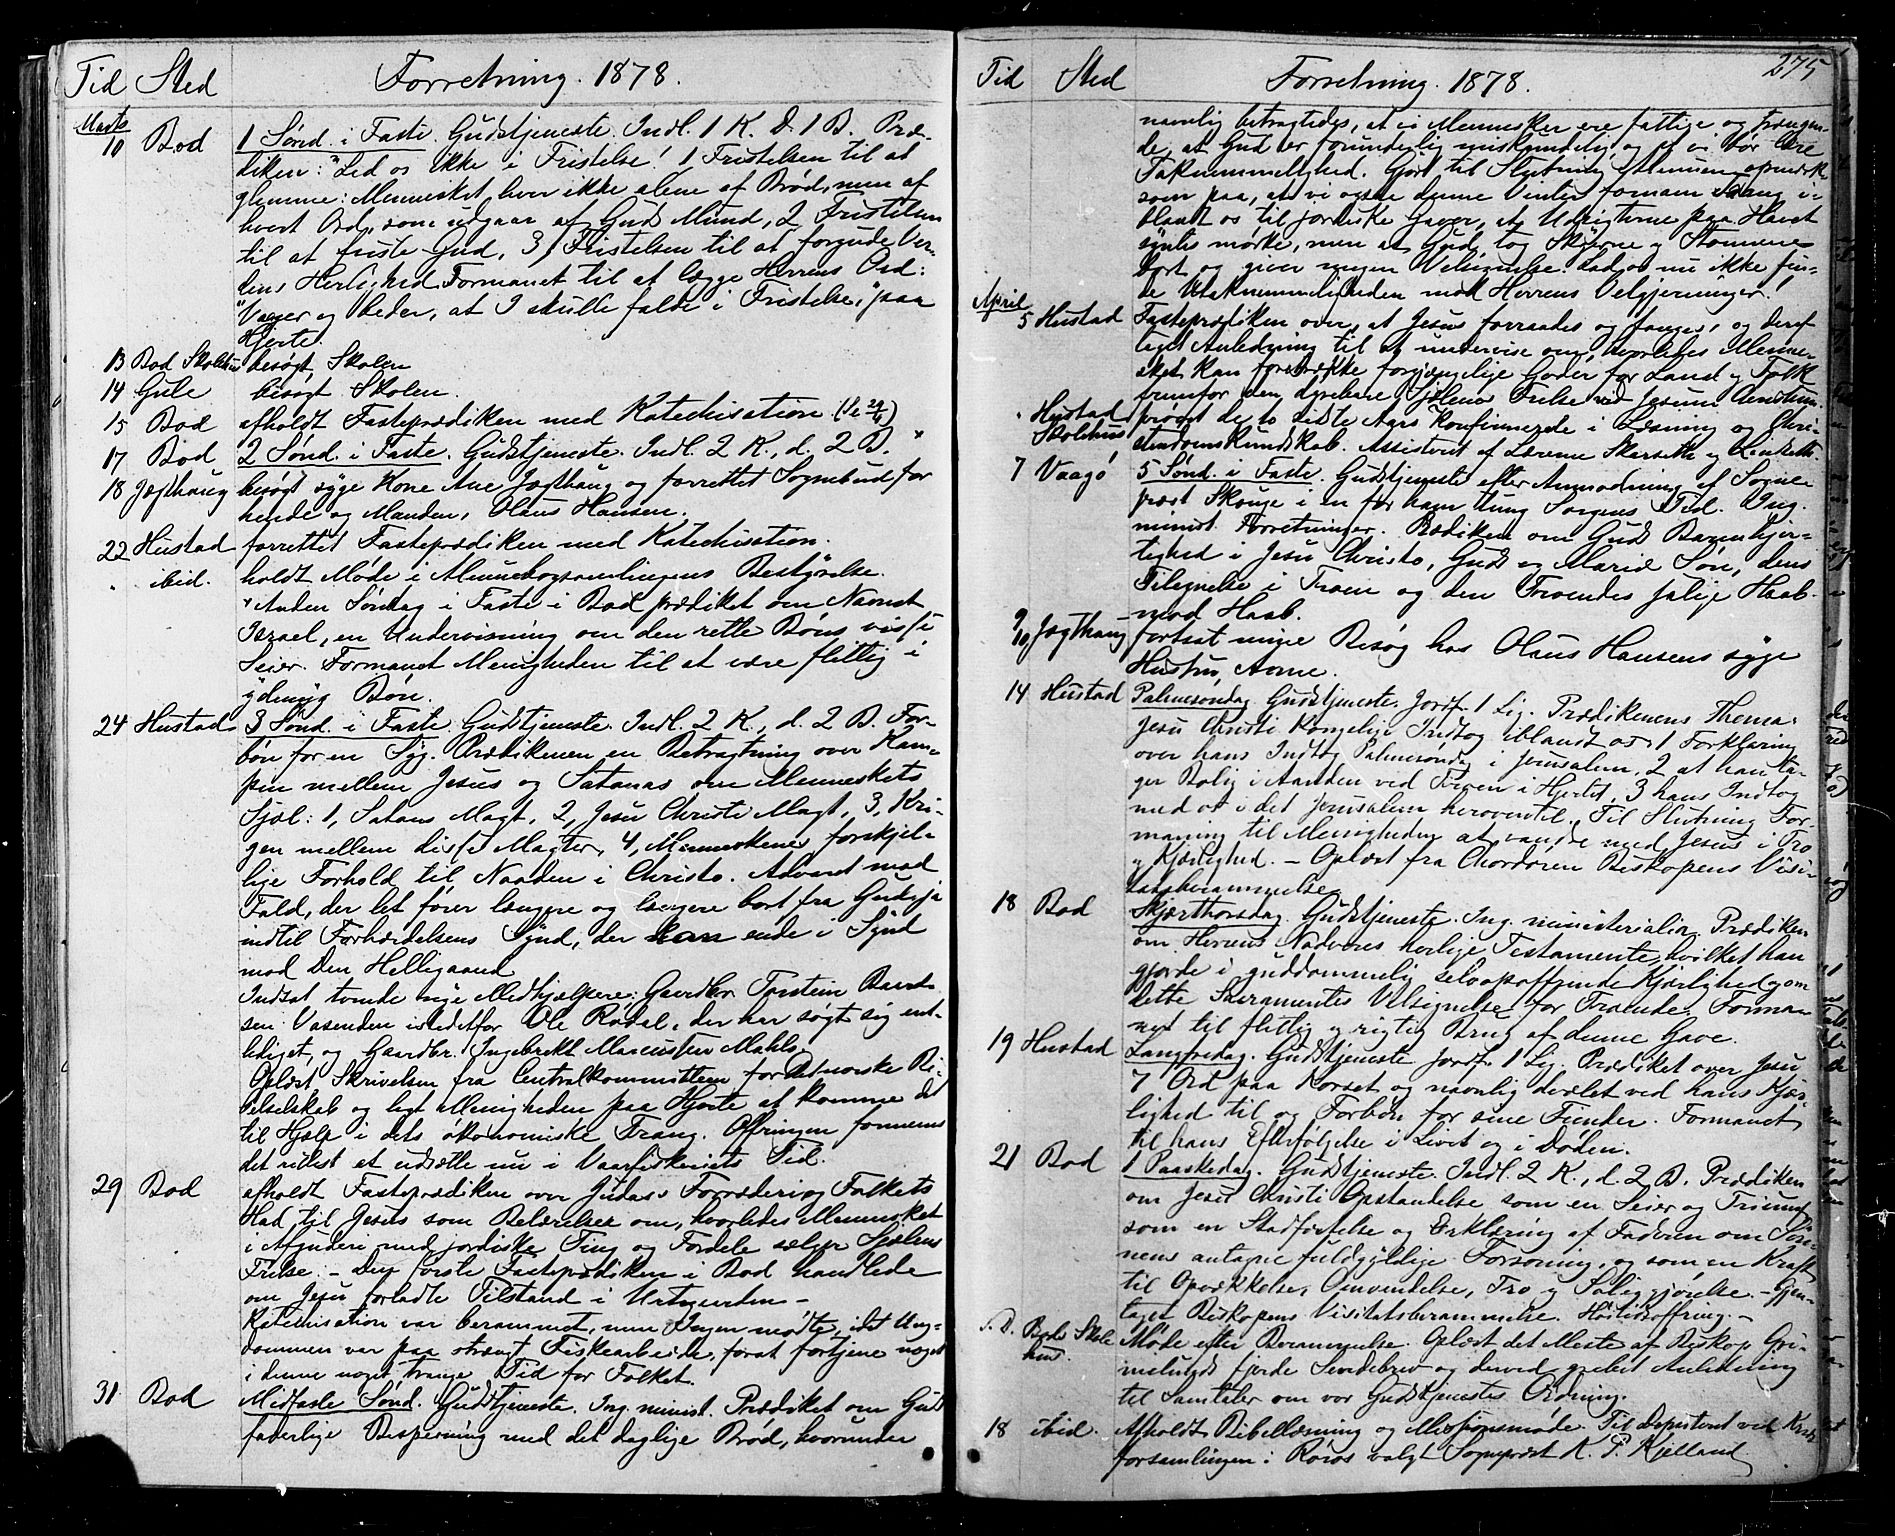 Tid Sted Forretning. 1878.
Marts
10 Bod 1 Sönd. i Faste. Gudstjeneste. Indl. 1 K. D. 1 B. Præ-
diken: "Led os ikke i Fristelse! 1, Fristelsen til at
glemme: Mennesket lever ikke alene af Bröd, men af
hvert Ord, som udgaar af Guds Mund, 2, Fristelsen
til at friste Gud, 3, Fristelsen til at forgude Ver-
dens Herlighed. Formanet til at lægge Herrens Ord:
"Vaager og beder, at I skulle falde i Fristelse," paa
Hjerte.
13 Bod Skolehus besögt Skolen
14 Gule besögt Skolen.
15 Bod afholdt Fasteprædiken med Katechisation
17 Bod 2 Sönd. i Faste. Gudstjeneste. Indl. 2 K., d. 2 B. *
18 Jægthaug besögt syge Kone Ane Jægthaug og forrettet Sognebud for
hende og Manden, Olaus Hansen.
22 Hustad forrettet Fasteprædiken med Katechisation.
" ibid. holdt Möde i Almuebogsamlingens Bestyrelse.
* Anden Söndag i Faste i Bod prædiket om Navnet
Israel, en Undervisning om den rette Böns visse
Seier. Formanet Menigheden til at være flittig i
ydmyg Bön.
24 Hustad 3 Sönd. i Faste. Gudstjeneste. Indl. 2 K., d. 2 B. For-
bön for en Syg. Prædikenen en Betragtning over Kam-
pen mellem Jesus og Satanas om Menneskets
Sjæl: 1, Satans Magt, 2, Jesu Christi Magt, 3, Kri-
gen mellem disse Magter, 4, Menneskenes forskjel-
lige Forhold til Naaden i Christo. Advaret mod
Fald, der let förer længere og længere bort fra Gud, ja
indtil Forhærdelsens Synd, der kan ende i Synd
mod Den Helligaand
Indsat tvende nye Medhjælpere: Gaardbr. Torstein
sen Vasenden istedetfor Ole Rödal, der har sögt sig ent-
lediget, og Gaardbr. Ingebrikt Marcussen
Oplæst Skrivelsen fra Centralkommitteen for Det norske Bi-
belselskab og lagt Menigheden paa Hjerte at komme det
til Hjælp i dets ökonomiske Trang. Offringen fandtes
det rettest at udsætte nu i Vaarfiskeriets Tid.
29 Bod afholdt Fasteprædiken over Judas's Forræderi og Folkets
Had til Jesus som Belærelser om, hvorledes Mennesket
i Afguderi med jordiske Ting og Fordele sælger Sjælens
Frelse. – Den förste Fasteprædiken i Bod handlede
om Jesu forladte Tilstand i Urtegaarden –
Katechisation var berammet, men Ingen mödte, idet Ung-
dommen var paa strængt Fiskearbeide, forat fortjene noget
i denne noget trange Tid for Folket.
31. Bod Midfaste Sönd. Gudstjeneste. Ing. minist. Prædiket om Guds
faderlige Bespisning med det daglige Bröd, hvorunder
275
Tid Sted Forretning. 1878.
navnlig betragtedes, at vi Mennesker ere fattige og trængen-
de, at Gud er forunderlig miskundelig og at vi bör lære
Taknemmelighed. Gjort til Slutning Menigheden opmærk-
som paa, at vi ogsaa denne Vinter fornam Trang i-
blandt os til jordiske Gaver, at Udsigterne paa Havet
syntes mörke, men at Gud tog Skyerne og Stormene
bort og giver megen Velsignelse. Lad os nu ikke fin-
de Utaknemmeligheden mod Herrens Velgjerninger!
April
5 Hustad Fasteprædiken over, at Jesus forraades og fanges, og deref
taget Anledning til at undervise om, hvorledes Menne-
sket kan foretrække forgjængelige Goder for Land og Folk
fremfor den dyrebare Sjælenes Frelse ved Jesum Christum.
" Hustad Skolehus prövet de to sidste Aars Konfirmerede i Læsning og Chri-
stendomskundskab. Assisteret af Lærerne Skarseth og
7 Vaagö 5 Sönd. i Faste. Gudstjeneste efter Anmodning af Sogne-
præst Skouge i en for ham tung Sorgens Tid. Ing.
minist. Forretninger. Prædiken om Guds Barmhjer-
tighed i Jesu Christo, Guds og Mariæ Sön, dens
Tilegnelse i Troen og den Troendes salige Haab.
mod Haab.
9/10 Jægthaug fortsat mine Besög hos Olaus Hansens syge
Hustru, Anne.
14 Hustad Palmesöndag Gudstjeneste. Jordf. 1 Lig. Prædikenens Thema:
Jesu Christi Kongelige Indtog iblandt os: 1 Forklaring
over hans Indtog Palmesöndag i Jerusalem, 2 at han ta-
ger Bolig i Aanden ved Troen i Hjertet, 3 hans Indtog
med os i det Jerusalem heroventil. Til Slutning For-
maning til Menigheden at vandre med Jesus i Tro
og Kjærlighed. – Oplæst fra Chordören Biskopens Visi-
tatsberammelse.
18 Bod Skjærthorsdag. Gudstjeneste. Ing. ministerialia. Prædiken
om Herrens Nadveres herlige Testamente, hvilket han
gjorde i guddommelig selvopoffrende Kjærlighed, og om
dette Sacramentes Velsignelse for Troende. Forma-
net til flittig og rigtig Brug af denne Gave.
19 Hustad Langfredag. Gudstjeneste. Jordf. 1 Lig. Prædiket over Jesu
7 Ord paa Korset og navnlig dvælet ved hans Kjær-
lighed til og Forbön for sine Fiender. Formanet
til hans Efterfölgelse i Livet og i Döden.
21 Bod 1 Paaskedag. Gudstjeneste. Indl. 2 K., d. 2 B. Prædiken
om Jesu Christi Opstandelse som en Seier og Triumf
som en Stadfæstelse og Erklæring af Faderen om Sön-
nens antagne fuldgyldige Forsoning, og som en Kraft
til Opvækkelse, Omvendelse, Tro og Saliggjörelse. – Gjen-
taget Biskopens Visitatsberammelse. Höitidsoffring –
s. D. Bods Skole hus. Möde efter Berammelse. Oplæst det Meste af Biskop Gri-
melunds fjerde Sendebrev og derved grebet Anledning
til Samtaler om vor Gudstjenestes Ordning.
18 ibid. Afholdt Bibellæsning og Missionsmöde. Til Deputeret ved Kreds
forsamlingen i Röros valgt Sognepræst K. P. Kjelland